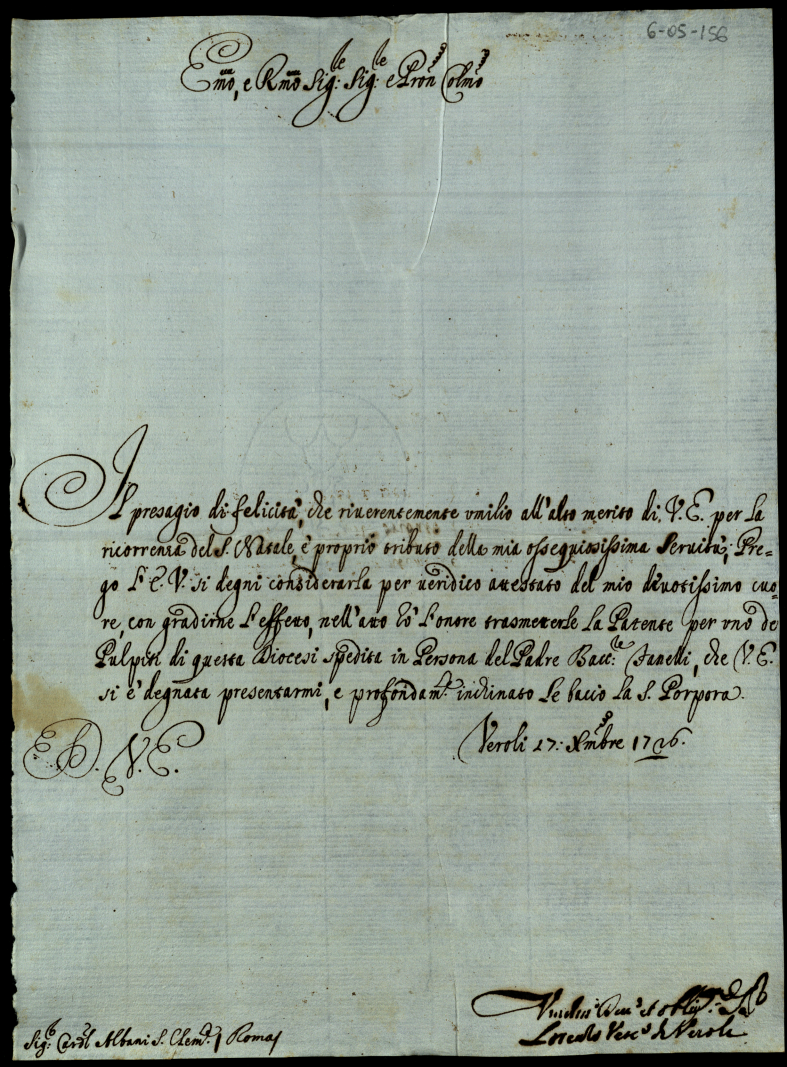 6-05-156
Emo, e Rmo Sig:re Sig:re e Pron Colmo
Il presagio di felicità, che riuerentemente vmilio all'alto merito di V. E. per la
ricorrenza del S. Natale, è proprio tributo della mia ossequiosissima Seruitù; Pre-
go L'E. V. si degni considerarla per ueridico attestato del mio diuotissimo cuo-
re, con gradirne L'effetto, nell'atto hò L'onore trasmetterle La Patente per vno de
Pulpiti di questa Diocesi spedita in Persona del Padre Bacc:re Janelli, che V. E.
si è degnata presentarmi, e profondam:te inchinato Le bacio La S. Porpora.
Veroli 27: Xmbre 1726.
E. D. V. E.
Sig:r Cardl Albani S. Clem:te / Roma /
Lorenzo Vesc:o di Veroli